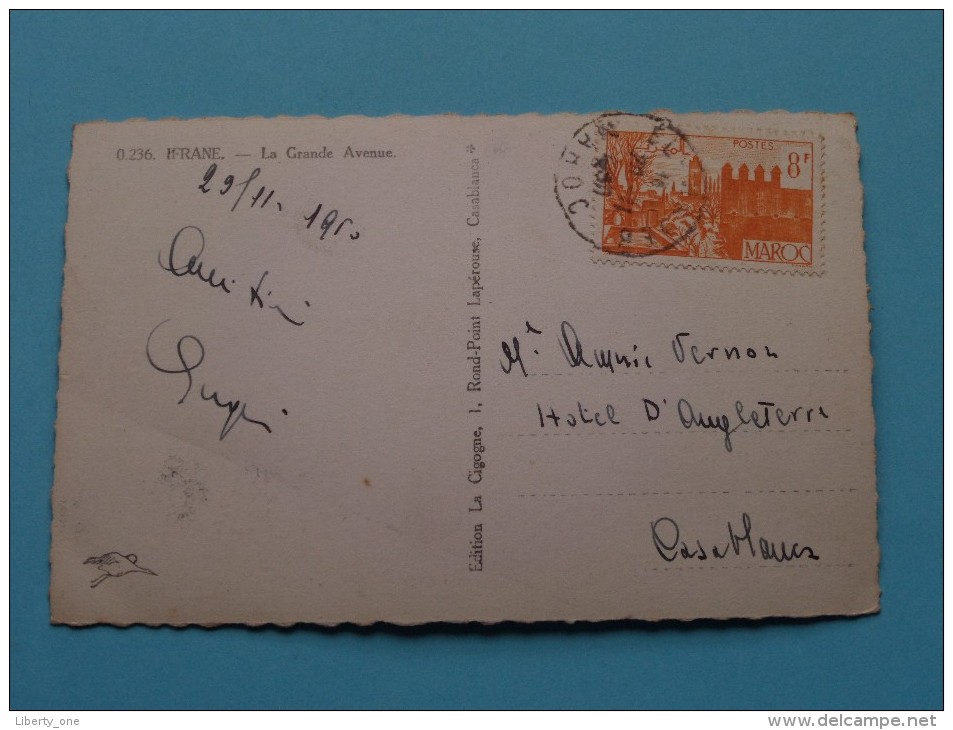 0.236. IFRANE. — La Grande Avenue.
29/11. 1950
Amitié
Edition La Cigogne, 1, Rond-Point Lapérouse, Casablanca *
POSTES 8F
MAROC
Mlle Annie Vernon
Hotel D'Angleterre
Casablanca
Liberty_one
www.delcampe.net